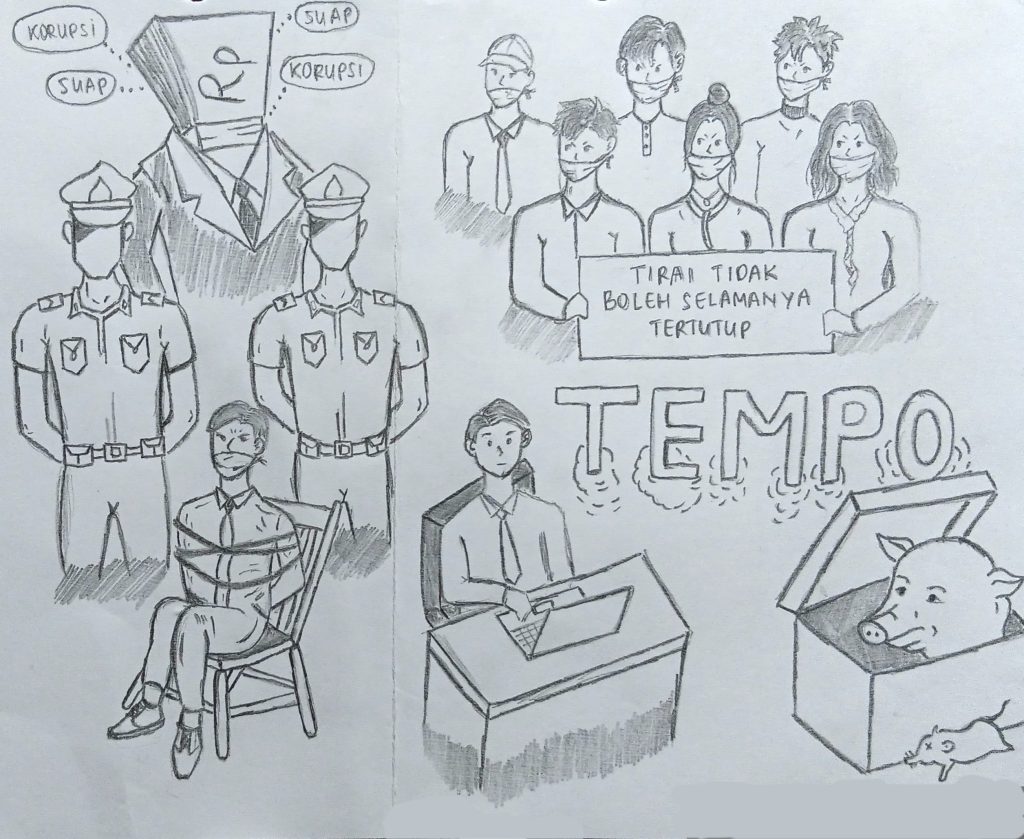 KORUPSI
SUAP
SUAP
KORUPSI
Rp
TIRAI TIDAK
BOLEH SELAMANYA
TERTUTUP
TEMPO